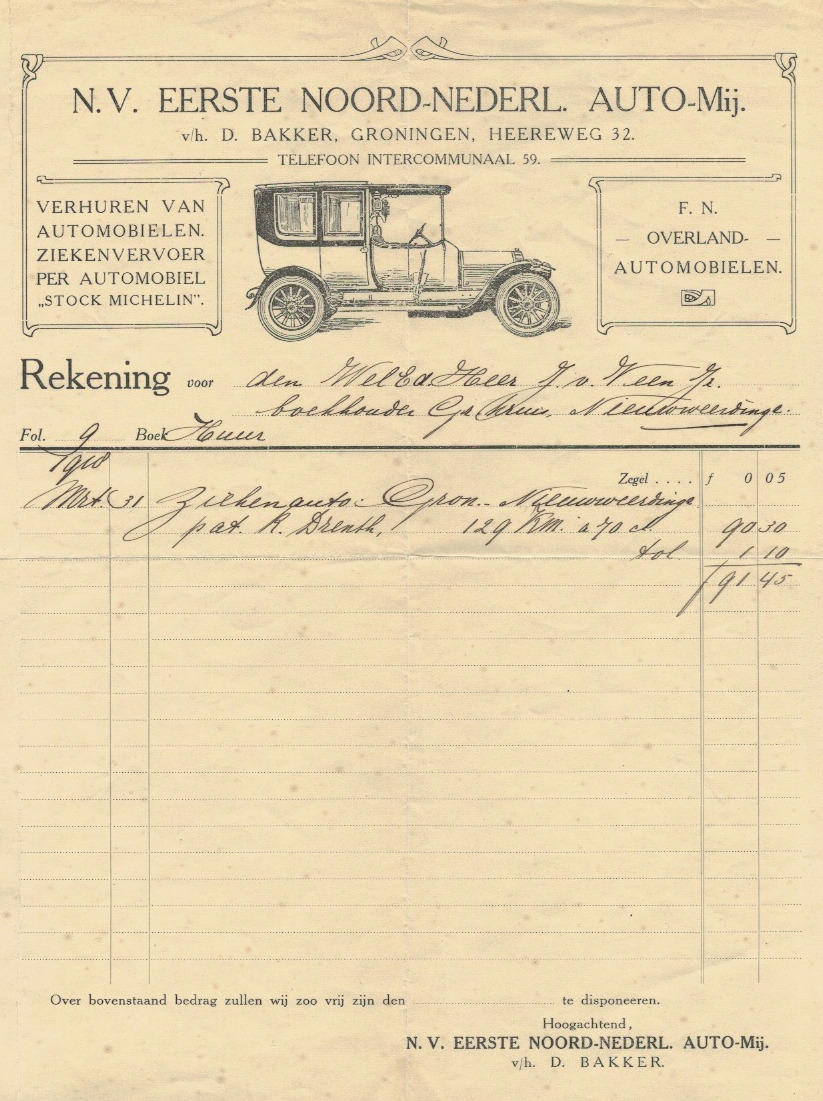 N.V. EERSTE NOORD-NEDERL. AUTO-Mij.
v/h. D. BAKKER, GRONINGEN, HEEREWEG 32.
TELEFOON INTERCOMMUNAAL 59.
VERHUREN VAN
AUTOMOBIELEN.
ZIEKENVERVOER
PER AUTOMOBIEL
„STOCK MICHELIN”.
F. N.
— OVERLAND- —
AUTOMOBIELEN.
Rekening voor den WelEd. Heer J. v. Veen Jr.
boekhouder Gr. Nieuwweerdinge.
Fol. 9 Boek Huur
1918
Zegel . . . . f 0 05
Mrt. 31 Ziekenauto: Gron. - Nieuwweerdinge
pat. R. Drenth, 129 Km. a 70 ct 90 30
tol 1 10
f 91 45
Over bovenstaand bedrag zullen wij zoo vrij zijn den te disponeeren.
Hoogachtend,
N. V. EERSTE NOORD-NEDERL. AUTO-Mij.
v/h. D. BAKKER.